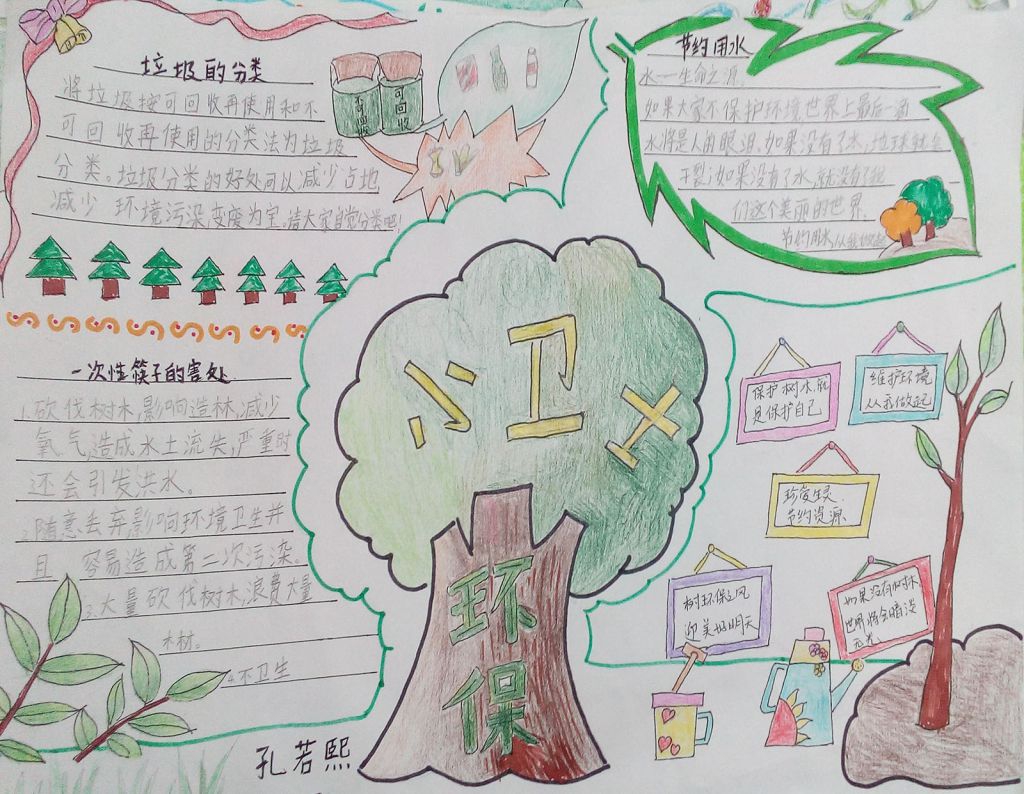 垃圾的分类
将垃圾按可回收再使用和不
可回收再使用的分类法为垃圾
分类。垃圾分类的好处可以减少占地
减少 环境污染,变废为宝,请大家自觉分类吧!
不可回收
可回收
节约用水
水一生命之源
如果大家不保护环境世界上最后一滴
水将是人的眼泪,如果没有了水,地球就会
干裂;如果没有了水,就没有了我
们这个美丽的世界.
节约用水,从我做起
一次性筷子的害处
1.砍伐树木,影响造林,减少
氧气,造成水土流失,严重时
还会引发洪水。
2.随意丢弃,影响环境卫生并
且 容易造成第二次污染。
3.大量砍伐树木,浪费大量
木材。
4.不卫生
小卫士
环保
保护树木,就
是保护自己
维护环境
从我做起
珍爱生灵
节约资源
树环保之风
迎美好明天
如果没有树木
世界将会暗淡
无光
孔若熙